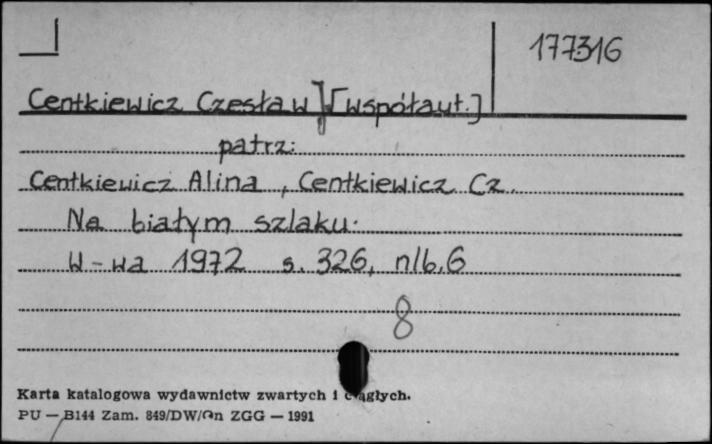 177316
Centkiewicz Czesław [współaut.]
patrz:
Centkiewicz Alina, Centkiewicz Cz.
Na białym szlaku.
W-wa 1972 s. 326, nlb. 6
8
Karta katalogowa wydawnictw zwartych i ciągłych.
PU — B144 Zam. 849/DW/On ZGG — 1991